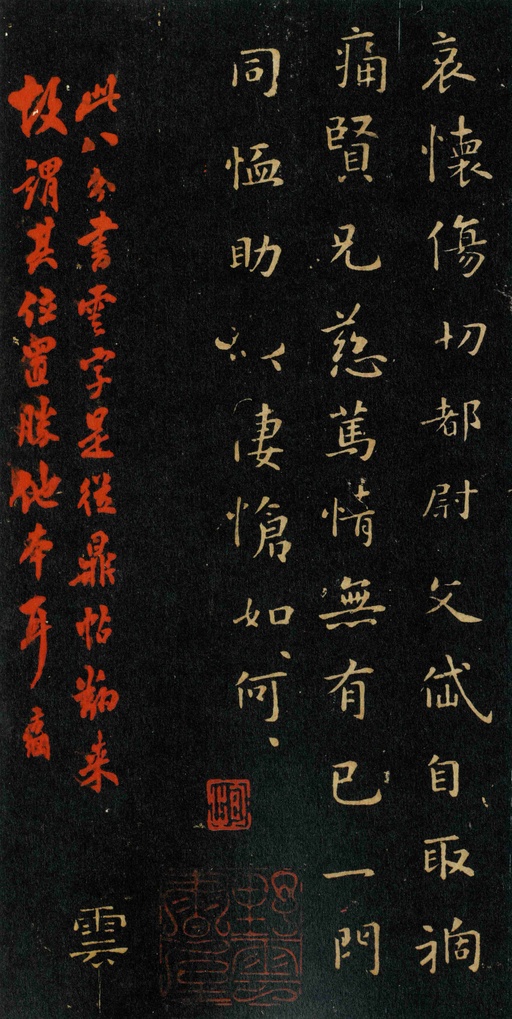 哀懷傷切都尉文岱自取禍
痛賢兄慈篤情無有已一門
同恤助以凄愴如〻何〻
此八分書雲字是從鼎帖翻来
故謂其位置勝他本耳
雲